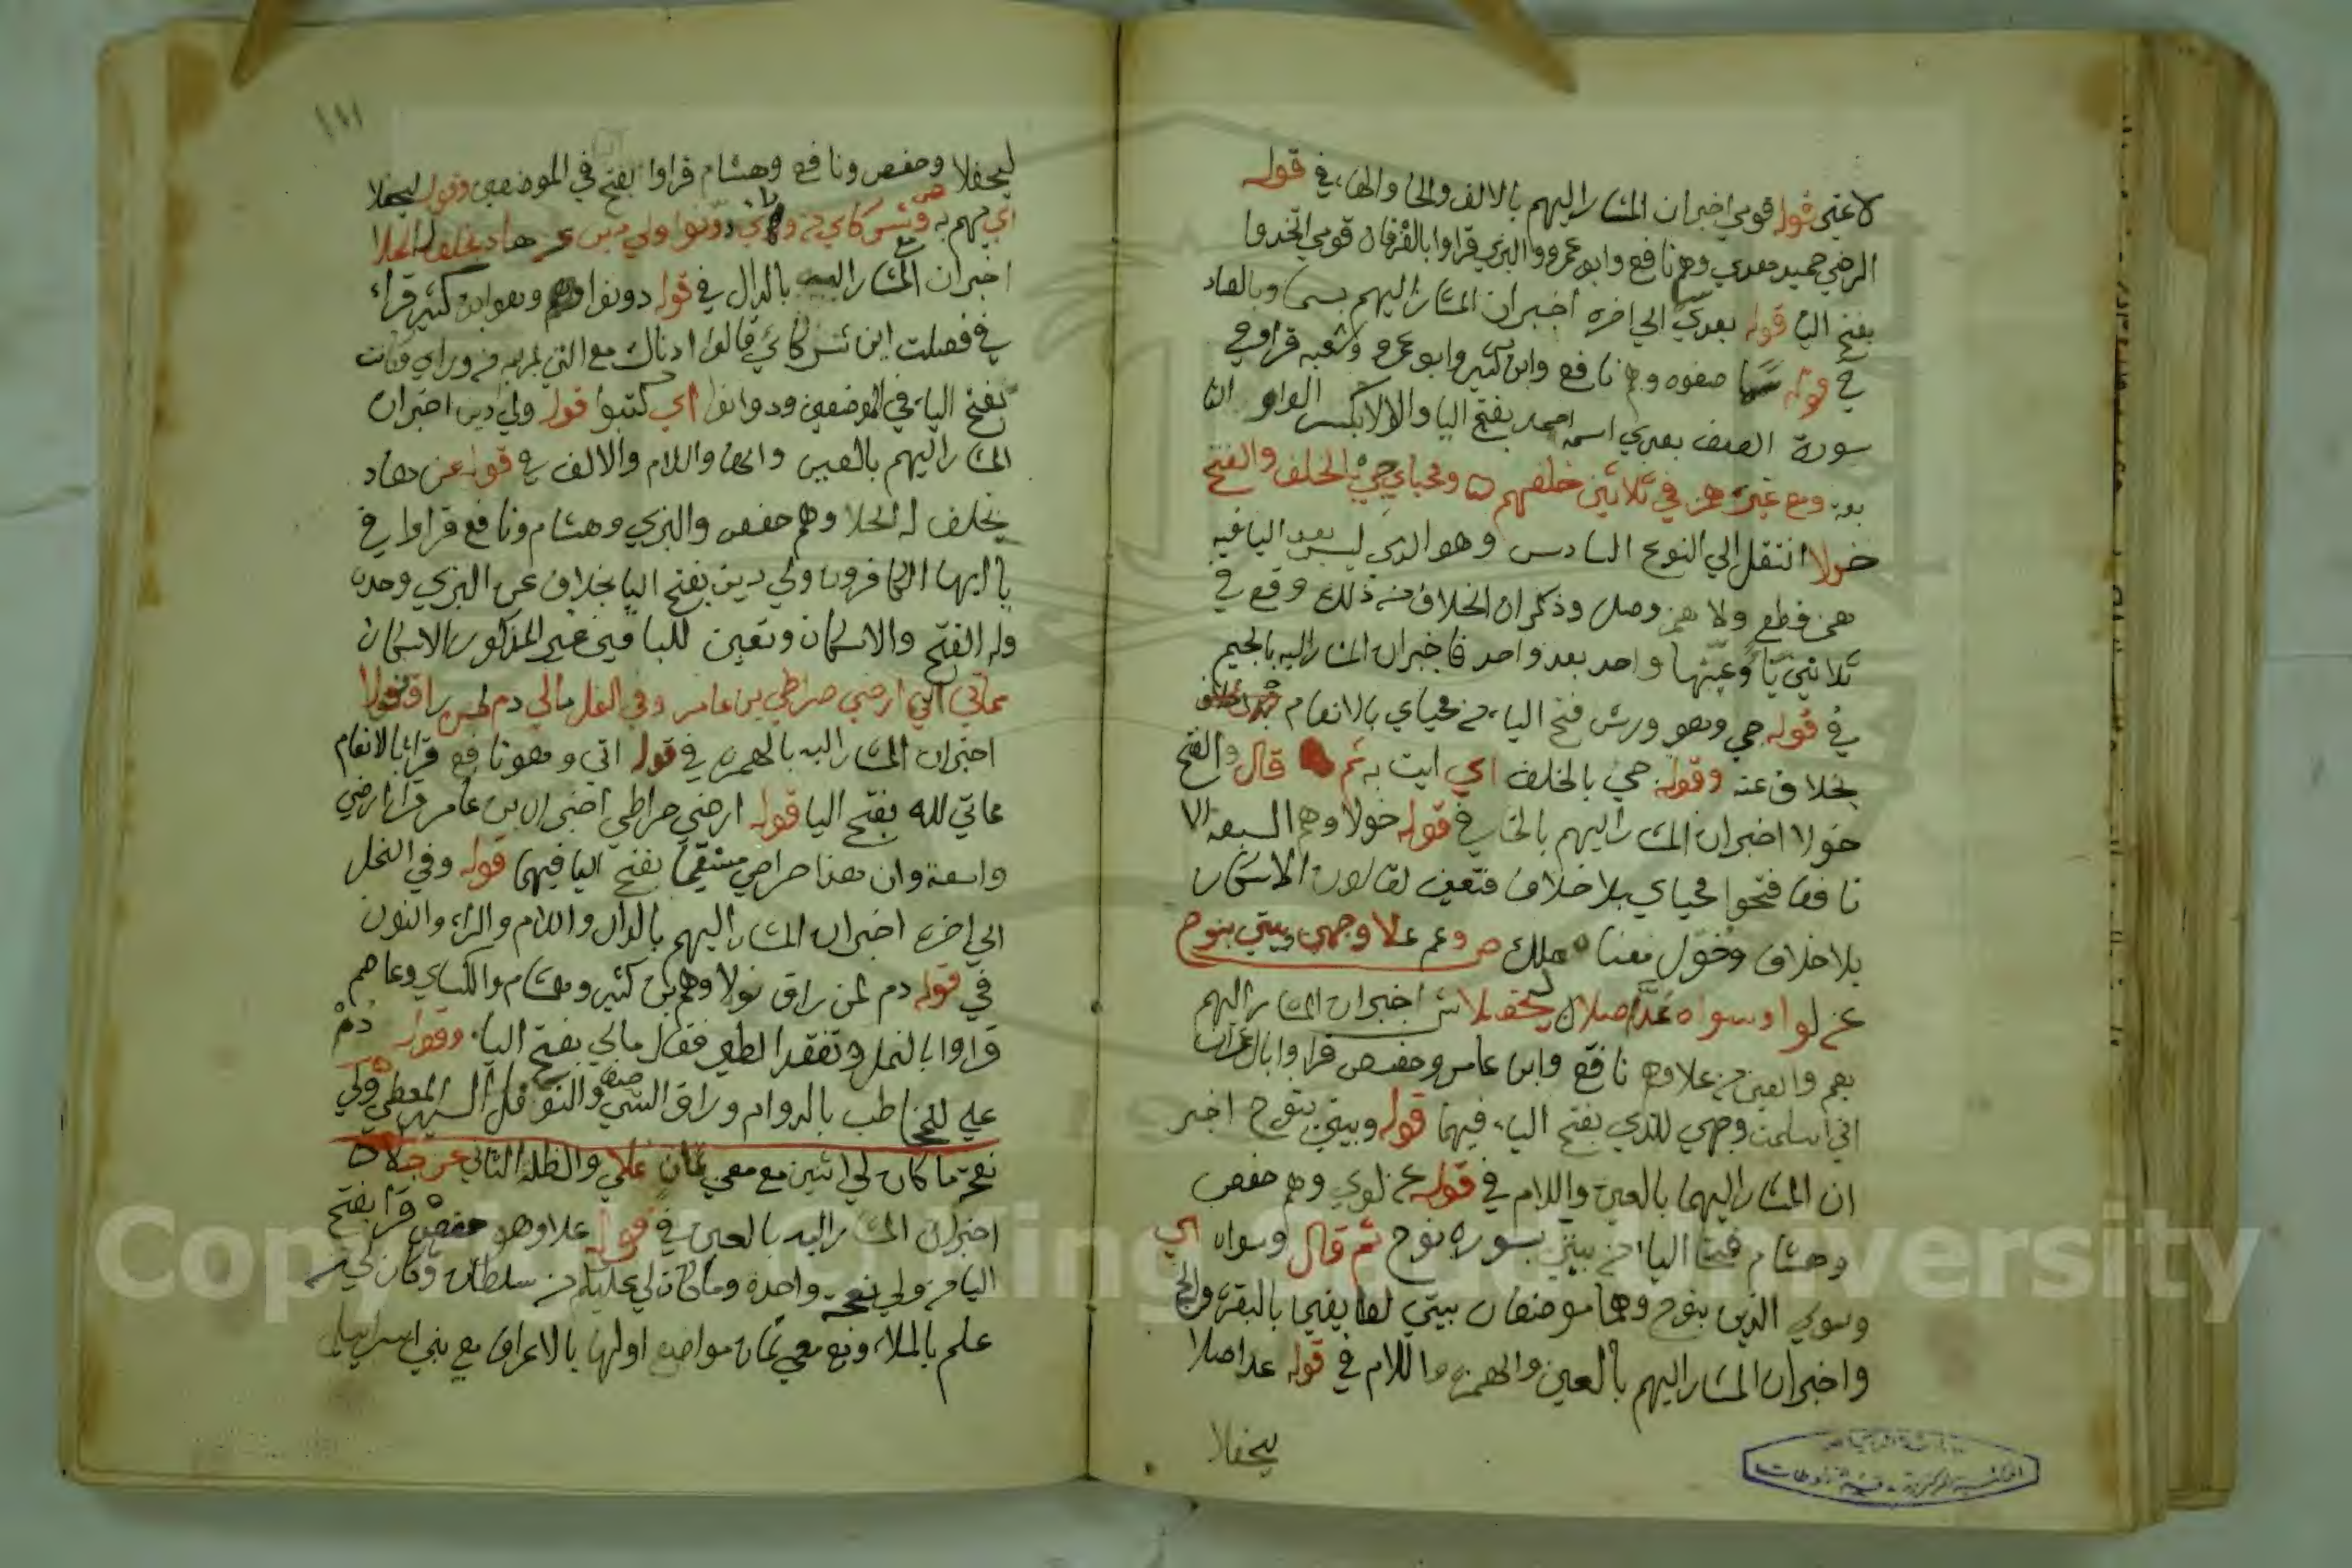 لاغير قوله قومي اخبران المشار اليهم بالالف والحا والهاء في قوله
الرضي حميد هدي وهم نافع وابو عمرو والبزي قراوا بالفرقان قومي اتخذوا
بفتح اليا قوله بعدي الي اخره اخبران المشار اليهم بسما وبالصاد
في قوله سما صفوه وهم نافع وابن كثير وابو عمرو وشعبه قراوا في
سورة الصف بعدي اسمه احمد بفتح اليا والولا بكسر الواو
ومع غير همز في ثلاثين خلفهم ومحياي جي بالخلف والفتح
خولا انتقل الي النوع السادس وهو الذي ليس بعد اليا فيه
همز قطع ولا همز وصل وذكر ان الخلاف منه ذلك وقع في
ثلاثين يا وعينها واحد بعد واحد فاخبران المشار اليه بالجيم
في قوله جي وهو ورش فتح الياء من محياي بالانعام
بخلاف عنه وقوله جي بالخلف اي ايت به ثم قال والفتح
خولا اخبران المشار اليهم بالخا في قوله خولا وهم السبعة الا
نافعا فتحوا محياي بلا خلاف فتعين لقالون الاسكان
بلا خلاف وخول معنا ملك ص وعم علا وجهي وبيتي بنوح
عن لوا وسواه عد اصلا ليحفلا ش اخبران المشار اليهم
بعم والعين من علا وهم نافع وابن عامر وحفص قراوا بال عمران
اني اسلمت وجهي للذي بفتح الياء فيهما قوله وبيتي بنوح اخبر
ان المشار اليهما بالعين واللام في قوله عن لوي وهم حفص
وهشام فتحا اليا من بيتي بسوره نوح ثم قال وسواه اي
وسوي الذين بنوح وهما موضعان بيتي لطايفين بالبقرة والحج
واخبران المشار اليهم بالعين والهمزه واللام في قوله عد اصلا
ليحفلا
١١١
ليحفلا وحفص ونافع وهشام قراوا بفتح في الموضعين وقوله ليحفلا
اي يهم به ص وشركاي من وراي دونوا ولي دين عن هاد بخلف له الحلا
اخبران المشار اليه بالدال في قوله دونوا وهو ابن كثير قراء
في فصلت اين شركائي قالوا اذناك مع التي بمريم من وراي وكانت
بفتح الياء في الموضعين ودوانوا اي كتبوا قوله ولي دين اخبران
المشار اليهم بالعين والها واللام والالف في قوله عن هاد
بخلف له الحلا وهم حفص والبزي وهشام ونافع قراوا في
يا ايها الكافرون ولي دين بفتح اليا بخلاف عن البزي وحده
وله الفتح والاسكان وتعين للباقين غير المذكورين الاسكان
مماتي اتي ارضي صراطي بن عامر وفي النمل مالي دم لمن راق نولا
اخبران المشار اليه بالهمزه في قوله اتي وهو نافع قرا بالانعام
مماتي لله بفتح اليا قوله ارضي صراطي اخبران بن عامر قرا ارضي
واسعة وان هذا صراطي مستقيما بفتح اليا فيهما قوله وفي النمل
الي اخره اخبران المشار اليهم بالدال واللام والراء والنون
في قوله دم لمن راق نولا وهم بن كثير وهشام والكساي وعاصم
قراوا بالنمل وتفقد الطير فقال مالي بفتح الياء وقوله دم
علي للمخاطب بالدوام وراق الشي صفي والنوفل السيد المعطي ولي
نعجة ما كان لي اثنين مع معي ثمان علا والظلة الثاني عن جلا
اخبران المشار اليه بالعين في قوله علا وهو حفص قرا بفتح
اليا من ولي نعجة واحدة وما كان لي عليكم من سلطان وكان لي من
علم بالملاء ومع معي ثمان مواضع اولها بالاعراف مع بني اسراييل